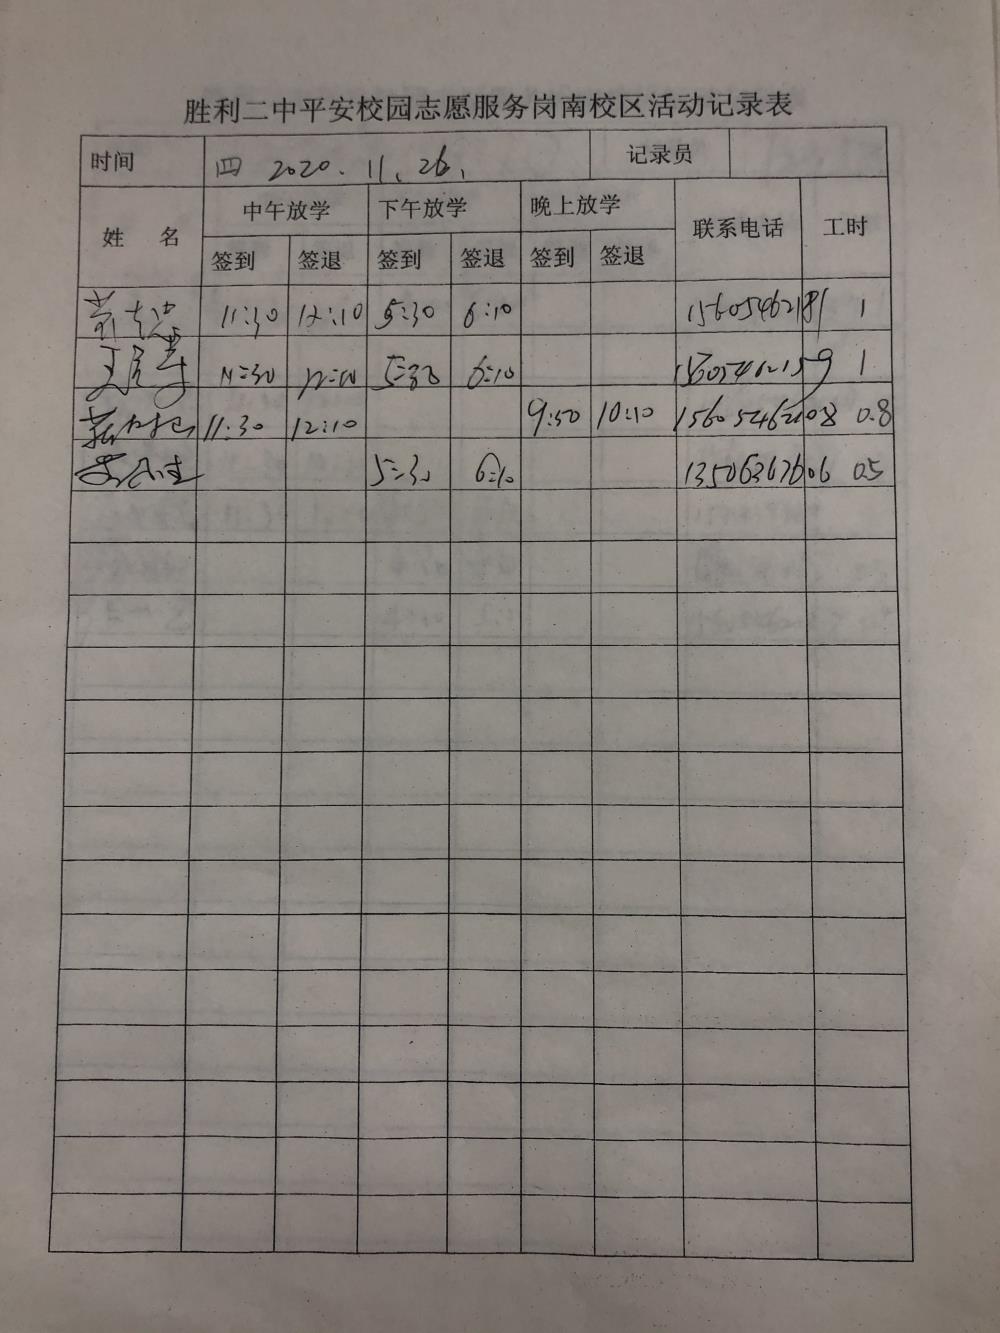 胜利二中平安校园志愿服务岗南校区活动记录表
时间 四 2020.11.26. 记录员
姓 名 中午放学 下午放学 晚上放学 联系电话 工时
签到 签退 签到 签退 签到 签退
11:30 12:10 5:30 6:10 15605462181 1
11:30 12:10 5:30 6:10 15605462159 1
11:30 12:10 9:50 10:10 15605462108 0.8
5:30 6:10 13506367606 0.5